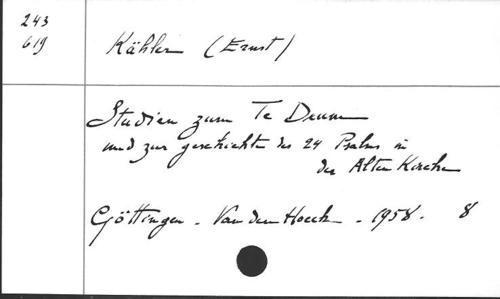 243
619
Kähler (Ernst)
Studien zum Te Deum
und zur geschichte des 24 Psalms in
der Alten Kirche
Göttingen - Van den Hoeck - 1958. 8